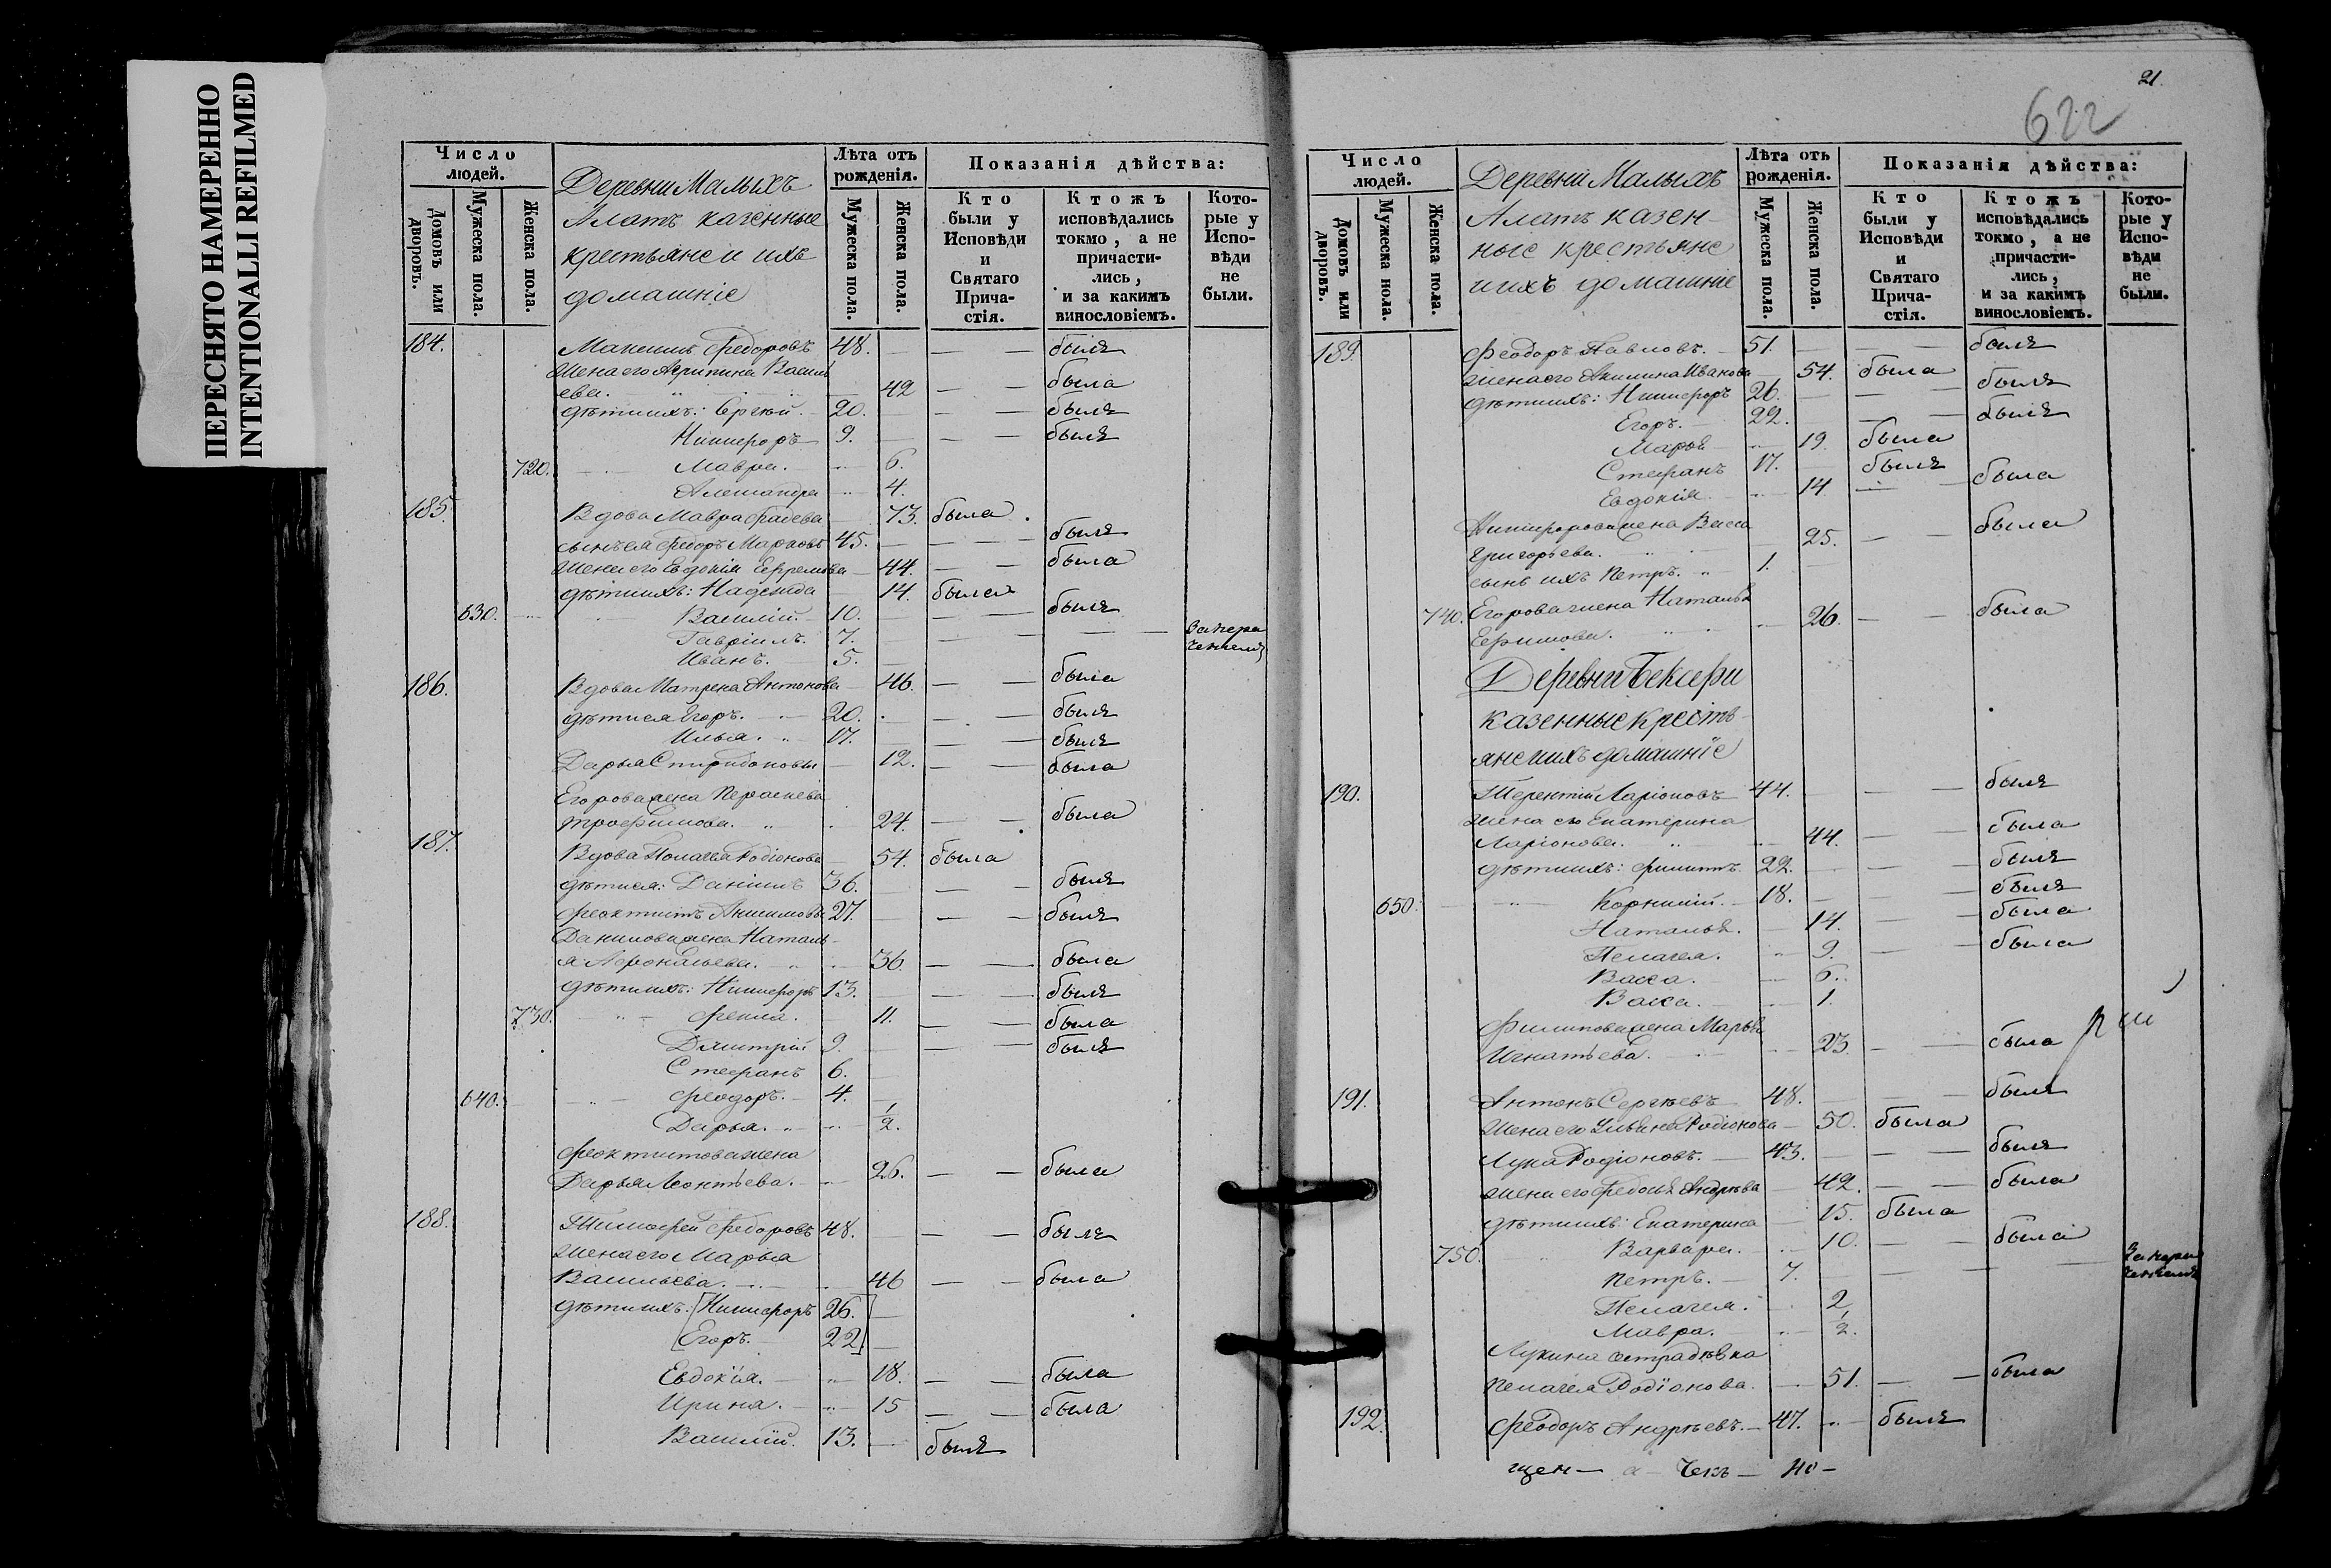 ПЕРЕСНЯТО НАМЕРЕННО
INTENTIONALLI REFILMED
Число людей.
Домовъ или дворовъ.
Мужеска пола.
Женска пола.
Деревни Малыхъ
Алатъ казенные
крестьяне и ихъ
домашніе
Лѣта отъ рожденія.
Мужеска пола.
Женска пола.
Показанія дѣйства:
Кто были у Исповѣди и Святаго Прича-стія.
Ктожъ исповѣдались токмо, а не причасти-лись, и за какимъ винословіемъ.
Кото-рые у Испо-вѣди не были.
184. Максимъ Федоровъ 48. — — былъ
Жена его Агрипина Василь
ева. 42 — — была
дѣти ихъ: Сергѣй. 20. — — былъ
Никифоръ 9. — — былъ
720. Мавра. 6.
Александра 4.
185. Вдова Мавра Фадеева 73. была
сынъ ея Федоръ Марковъ 45. — — былъ
Жена его Евдокія Ефремова 44. — — была
дѣти ихъ: Надежда 14. была
630. Василій. 10. — — былъ
Гавріилъ. 7. — — —
Иванъ. 5.
186. Вдова Матрена Антонова 46. — — была
дѣти ея Егоръ. 20. — — былъ
Илья. 17. — — былъ
Дарья Спиридоновы 12. — — была
Егорова жена
Трофимова. 24. — — была
187. Вдова Пелагея Родіонова 54. была
дѣти ея: Даніилъ 36. — — былъ
Феоктистъ Анисимовы 27. — — былъ
Данилова жена Наталь-
я Афонасьева. 36. — — была
дѣти ихъ: Никифоръ 13. — — былъ
730. Фекла. 11. — — была
Димитрій 9. — — былъ
Стефанъ 6.
640. Феодоръ. 4.
Дарья. 1/2.
Феоктистова жена
Дарья Леонтьева. 26. — — была
188. Тимофей Федоровъ 48. — — былъ
Жена его Марья
Васильева. 46 — — была
дѣти ихъ: [Никифоръ 26.]
[Егоръ. 22.]
Евдокія. 18. — — была
Ирина. 15 — — была
Василій. 13. — былъ
21.
622
Число людей.
Домовъ или дворовъ.
Мужеска пола.
Женска пола.
Деревни Малыхъ
Алатъ казен-
ные крестьяне
и ихъ домашніе
Лѣта отъ рожденія.
Мужеска пола.
Женска пола.
Показанія дѣйства:
Кто были у Исповѣди и Святаго Прича-стія.
Ктожъ исповѣдались токмо, а не причасти-лись, и за какимъ винословіемъ.
Кото-рые у Испо-вѣди не были.
189. Феодоръ Павловъ. 51. — — былъ
Жена его Акилина Иванова 54. была
дѣти ихъ: Никифоръ 26. — — былъ
Егоръ. 22. — — былъ
Марфа 19. была
Стефанъ 17. былъ
Евдокія. 14. — — была
Никифорова жена Васса
Григорьева. 25. — — была
сынъ ихъ Петръ. 1.
740. Егорова жена Наталья
Ефимова. 26. — — была
Деревни Бексери
казенные кресть-
яне и ихъ домашніе
190. Терентій Ларіоновъ 44. — — былъ
Жена его Екатерина
Ларіонова. 44. — — была
дѣти ихъ: Филиппъ. 22. — — былъ
650. Корнилій. 18. — — былъ
Наталья. 14. — — была
Пелагея. 9. — — была
Васса. 6.
Васса. 1.
Филипова жена Марья
Игнатьева. 23. — — была
191. Антонъ Сергѣевъ 48. — — былъ
Жена его Ульяна Родіонова 50. была
Лука Родіоновъ. 43. — — былъ
жена его Федосья Андрѣева 42. — — была
дѣти ихъ: Екатерина 15. была
750. Варвара. 10. — — была
Петръ. 7. — — —
Пелагея. 2.
Мавра. 1/2.
Лукина
Пелагея Родіонова. 51. — — была
192. Феодоръ Андрѣевъ. 47. былъ